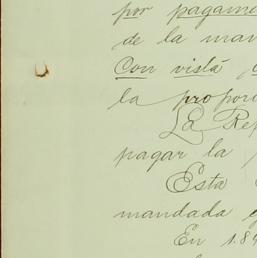 por pagame
de la man
Con vista
la propor
La Rep
pagar la
Esta
mandada
En 1.84